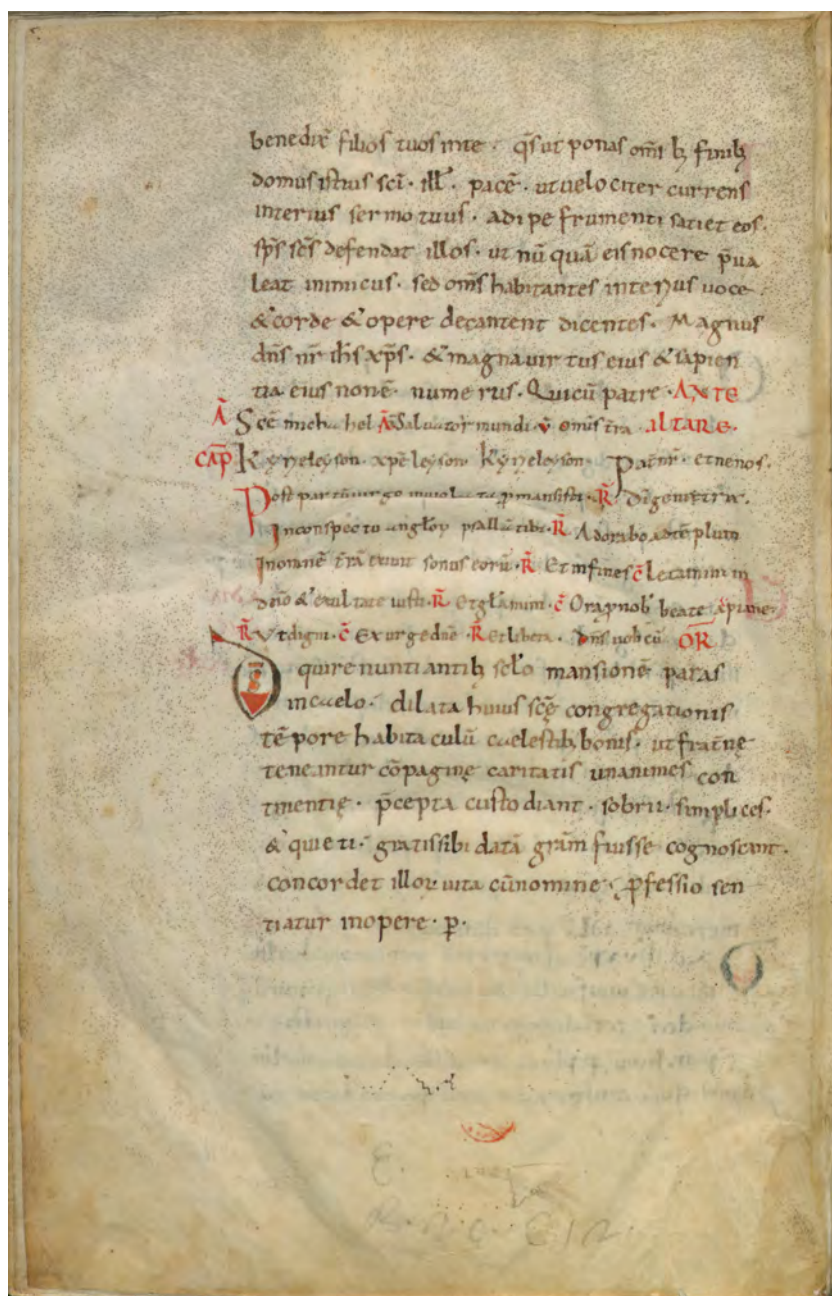 benedic̄ filios tuos in te · q̄s ut ponas om̄ibꝫ finibꝫ
domus istius sc̄i · ill̄ · pacē · ut uelociter currens
interius sermo tuus · adipe frumenti satiet eos ·
sp̄s sc̄s defendat illos · ut nū quā eis nocere p̄ua
leat inimicus · sed om̄s habitantes interius uoce
& corde & opere decantent dicentes · Magnus
dn̄s nr̄ ih̄s xp̄s · & magna uirtus eius & sapien
tia eius non ē numerus · Quicū patre · ANTE
Ā Sc̄e michahel Ā Saluator mundi · v̄ Om̄is t̄ra ALTARE ·
CAP̄ Kyrieleyson · xp̄eleyson Kyrieleyson · Pat̄ nr̄ · et ne nos ·
Post partū uirgo inuiolata ꝑmansisti · R̄ di genitrix ·
In conspectu angloꝝ psallā tibi · R̄ Adorabo ad tēplum
In omnē t̄rā exiuit sonus eorū · R̄ Et in fines c̄ Letamini in
dn̄o & exultate iusti · R̄ Et gl̄amini · c̄ Ora ꝓ nob̄ beate
R̄ Ut digni · c̄ Exurge dn̄e · R̄ Et libera · Dn̄s uobcū OR̄
D̄s qui renuntiantibꝫ sc̄lo mansionē paras
in caelo · dilata huius sc̄ę congregationis
tēpore habitaculū caelestibꝫ bonis · ut frat̄nę
teneantur cōpaginę caritatis unanimes con
tinentię · p̄cepta custodiant · sobrii · simplices ·
& quieti · gratis sibi datā gr̄am fuisse cognoscant ·
concordet illoꝝ uita cū nomine · ꝓfessio sen
tiatur in opere · p̄ ·